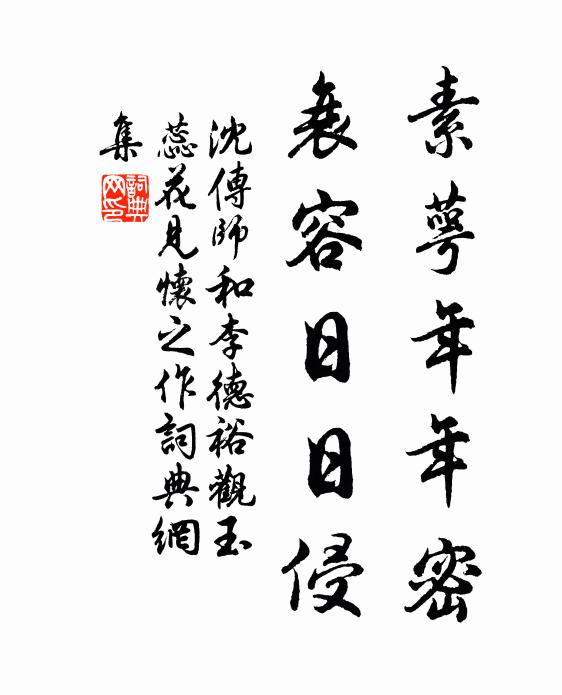 素萼年年密
衰容日日侵
沈傳師和李德裕觀玉
蕊花見懷之作詞典網
集
詞典
网印